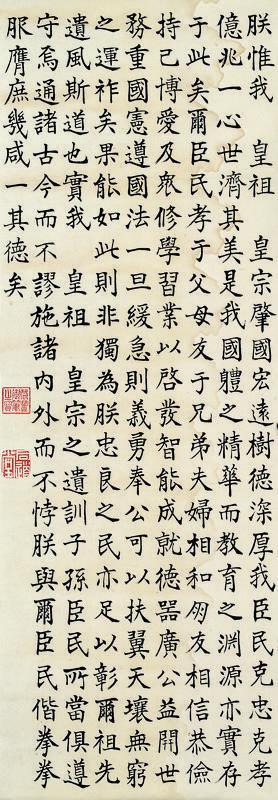 朕惟我　皇祖　皇宗肇國宏遠樹德深厚我臣民克忠克孝
億兆一心世濟其美是我國體之精華而教育之淵源亦實存
于此矣爾臣民孝于父母友于兄弟夫婦相和朋友相信恭儉
持己博愛及眾修學習業以啓發智能成就德器廣公益開世
務重國憲遵國法一旦緩急則義勇奉公可以扶翼天壤無窮
之運祚矣果能如此則非獨為朕忠良之民亦足以彰爾祖先
遺風斯道也實我　皇祖　皇宗之遺訓子孫臣民所當俱遵
守焉通諸古今而不謬施諸內外而不悖朕與爾臣民偕拳拳
服膺庶幾咸一其德矣